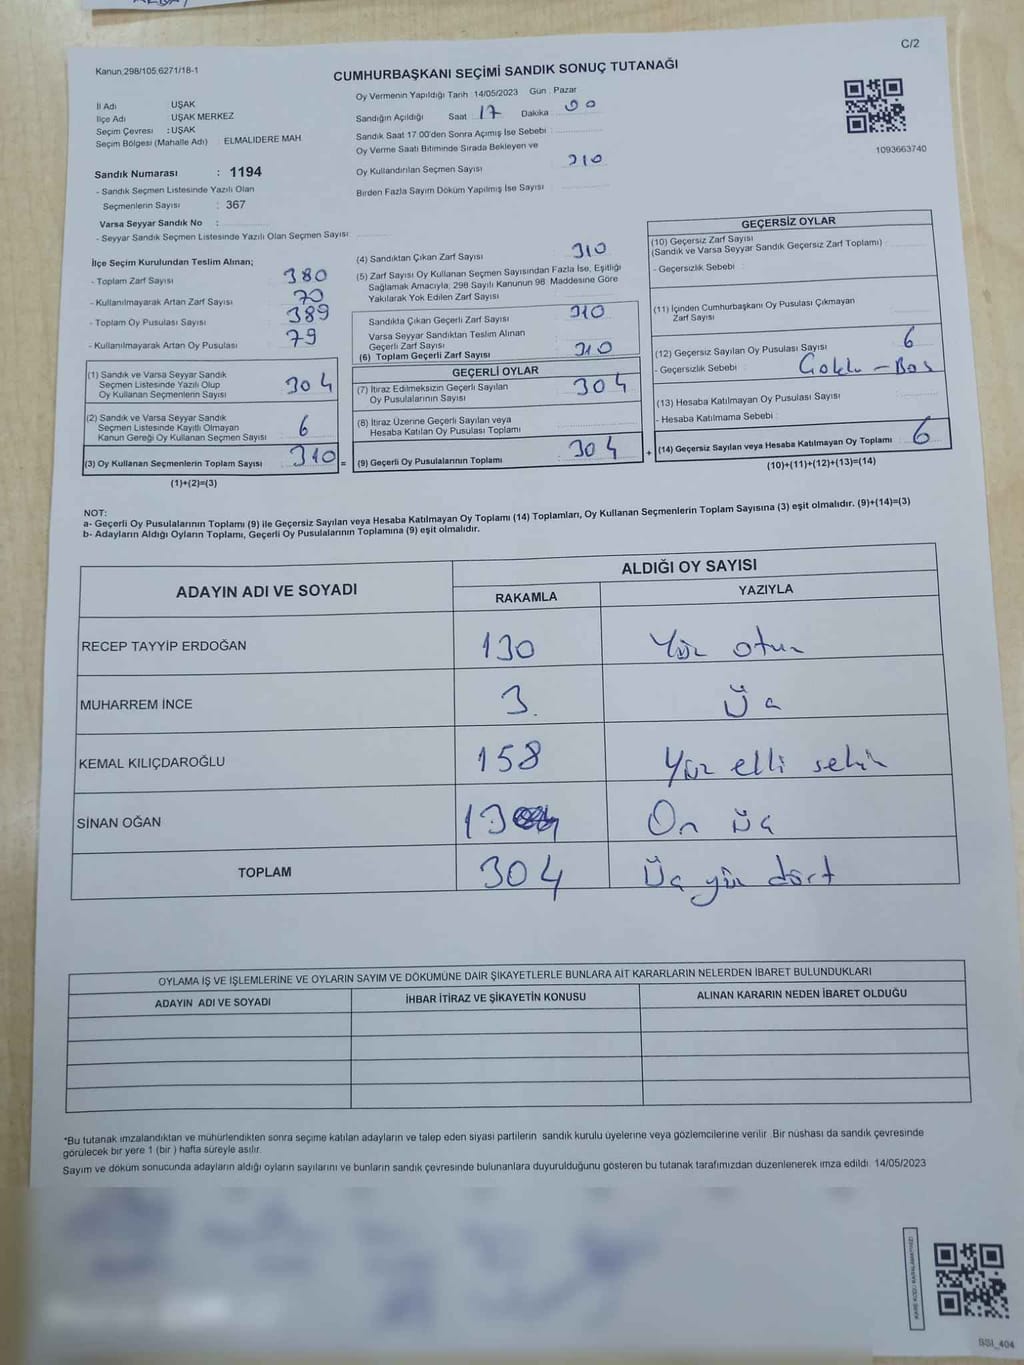 C/2
Kanun;298/105,6271/18-1
CUMHURBAŞKANI SEÇİMİ SANDIK SONUÇ TUTANAĞI
İl Adı UŞAK
İlçe Adı UŞAK MERKEZ
Seçim Çevresi : UŞAK
Seçim Bölgesi (Mahalle Adı) : ELMALIDERE MAH.
Sandık Numarası : 1194
- Sandık Seçmen Listesinde Yazılı Olan
Seçmenlerin Sayısı : 367
Varsa Seyyar Sandık No :
- Seyyar Sandık Seçmen Listesinde Yazılı Olan Seçmen Sayısı:
Oy Vermenin Yapıldığı Tarih : 14/05/2023 Gün : Pazar
Sandığın Açıldığı Saat : 17 Dakika : 00
Sandık Saat 17:00'den Sonra Açımış İse Sebebi :
Oy Verme Saati Bitiminde Sırada Bekleyen ve
Oy Kullandırılan Seçmen Sayısı : 310
Birden Fazla Sayım Döküm Yapılmış İse Sayısı :
1093663740
İlçe Seçim Kurulundan Teslim Alınan;
- Toplam Zarf Sayısı : 380
- Kullanılmayarak Artan Zarf Sayısı : 70
- Toplam Oy Pusulası Sayısı : 389
- Kullanılmayarak Artan Oy Pusulası : 79
(1) Sandık ve Varsa Seyyar Sandık
Seçmen Listesinde Yazılı Olup
Oy Kullanan Seçmenlerin Sayısı : 304
(2) Sandık ve Varsa Seyyar Sandık
Seçmen Listesinde Kayıtlı Olmayan
Kanun Gereği Oy Kullanan Seçmen Sayısı : 6
(3) Oy Kullanan Seçmenlerin Toplam Sayısı : 310 =
(1)+(2)=(3)
(4) Sandıktan Çıkan Zarf Sayısı : 310
(5) Zarf Sayısı Oy Kullanan Seçmen Sayısından Fazla İse, Eşitliği
Sağlamak Amacıyla; 298 Sayılı Kanunun 98. Maddesine Göre
Yakılarak Yok Edilen Zarf Sayısı :
Sandıkta Çıkan Geçerli Zarf Sayısı : 310
Varsa Seyyar Sandıktan Teslim Alınan
Geçerli Zarf Sayısı :
(6) Toplam Geçerli Zarf Sayısı : 310
GEÇERLİ OYLAR
(7) İtiraz Edilmeksizin Geçerli Sayılan
Oy Pusulalarının Sayısı : 304
(8) İtiraz Üzerine Geçerli Sayılan veya
Hesaba Katılan Oy Pusulası Toplamı :
(9) Geçerli Oy Pusulalarının Toplamı : 304 +
GEÇERSİZ OYLAR
(10) Geçersiz Zarf Sayısı
(Sandık ve Varsa Seyyar Sandık Geçersiz Zarf Toplamı) :
- Geçersizlik Sebebi :
(11) İçinden Cumhurbaşkanı Oy Pusulası Çıkmayan
Zarf Sayısı :
(12) Geçersiz Sayılan Oy Pusulası Sayısı : 6
- Geçersizlik Sebebi : Çoklu - Boş
(13) Hesaba Katılmayan Oy Pusulası Sayısı :
- Hesaba Katılmama Sebebi :
(14) Geçersiz Sayılan veya Hesaba Katılmayan Oy Toplamı : 6
(10)+(11)+(12)+(13)=(14)
NOT:
a- Geçerli Oy Pusulalarının Toplamı (9) ile Geçersiz Sayılan veya Hesaba Katılmayan Oy Toplamı (14) Toplamları, Oy Kullanan Seçmenlerin Toplam Sayısına (3) eşit olmalıdır. (9)+(14)=(3)
b- Adayların Aldığı Oyların Toplamı, Geçerli Oy Pusulalarının Toplamına (9) eşit olmalıdır.
ADAYIN ADI VE SOYADI ALDIĞI OY SAYISI
RAKAMLA YAZIYLA
RECEP TAYYİP ERDOĞAN 130 Yüz otuz
MUHARREM İNCE 3. Üç
KEMAL KILIÇDAROĞLU 158 Yüz elli sekiz
SİNAN OĞAN 13 On üç
TOPLAM 304 Üç yüz dört
OYLAMA İŞ VE İŞLEMLERİNE VE OYLARIN SAYIM VE DÖKÜMÜNE DAİR ŞİKAYETLERLE BUNLARA AİT KARARLARIN NELERDEN İBARET BULUNDUKLARI
ADAYIN ADI VE SOYADI İHBAR İTİRAZ VE ŞİKAYETİN KONUSU ALINAN KARARIN NEDEN İBARET OLDUĞU
*Bu tutanak imzalandıktan ve mühürlendikten sonra seçime katılan adayların ve talep eden siyasi partilerin sandık kurulu üyelerine veya gözlemcilerine verilir. Bir nüshası da sandık çevresinde
görülecek bir yere 1 (bir ) hafta süreyle asılır.
Sayım ve döküm sonucunda adayların aldığı oyların sayılarını ve bunların sandık çevresinde bulunanlara duyurulduğunu gösteren bu tutanak tarafımızdan düzenlenerek imza edildi. 14/05/2023
KARE KODU KARALAMAYINIZ!
SSI_404